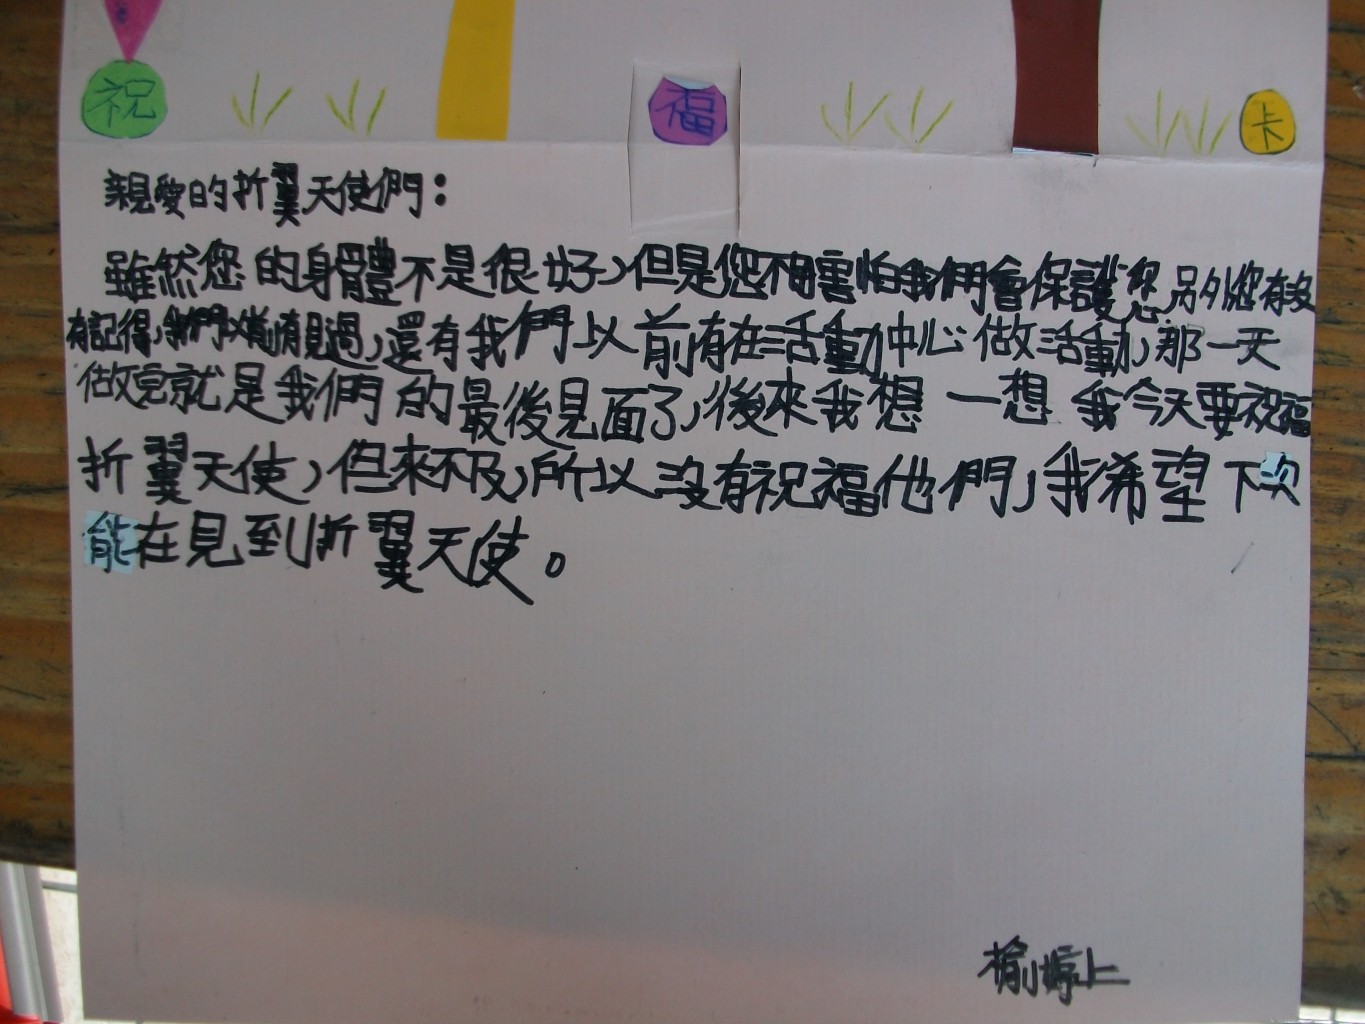 祝 福 卡
親愛的折翼天使們：
雖然您的身體不是很好,但是您不用害怕我們會保護您另外您有没
有記得,我們以前有見過,還有我們以前有在活動中心做活動,那一天
做完就是我們的最後見面了,後來我想一想我今天要祝福
折翼天使,但來不及,所以没有祝福他們,我希望下次
能在見到折翼天使。
婷上